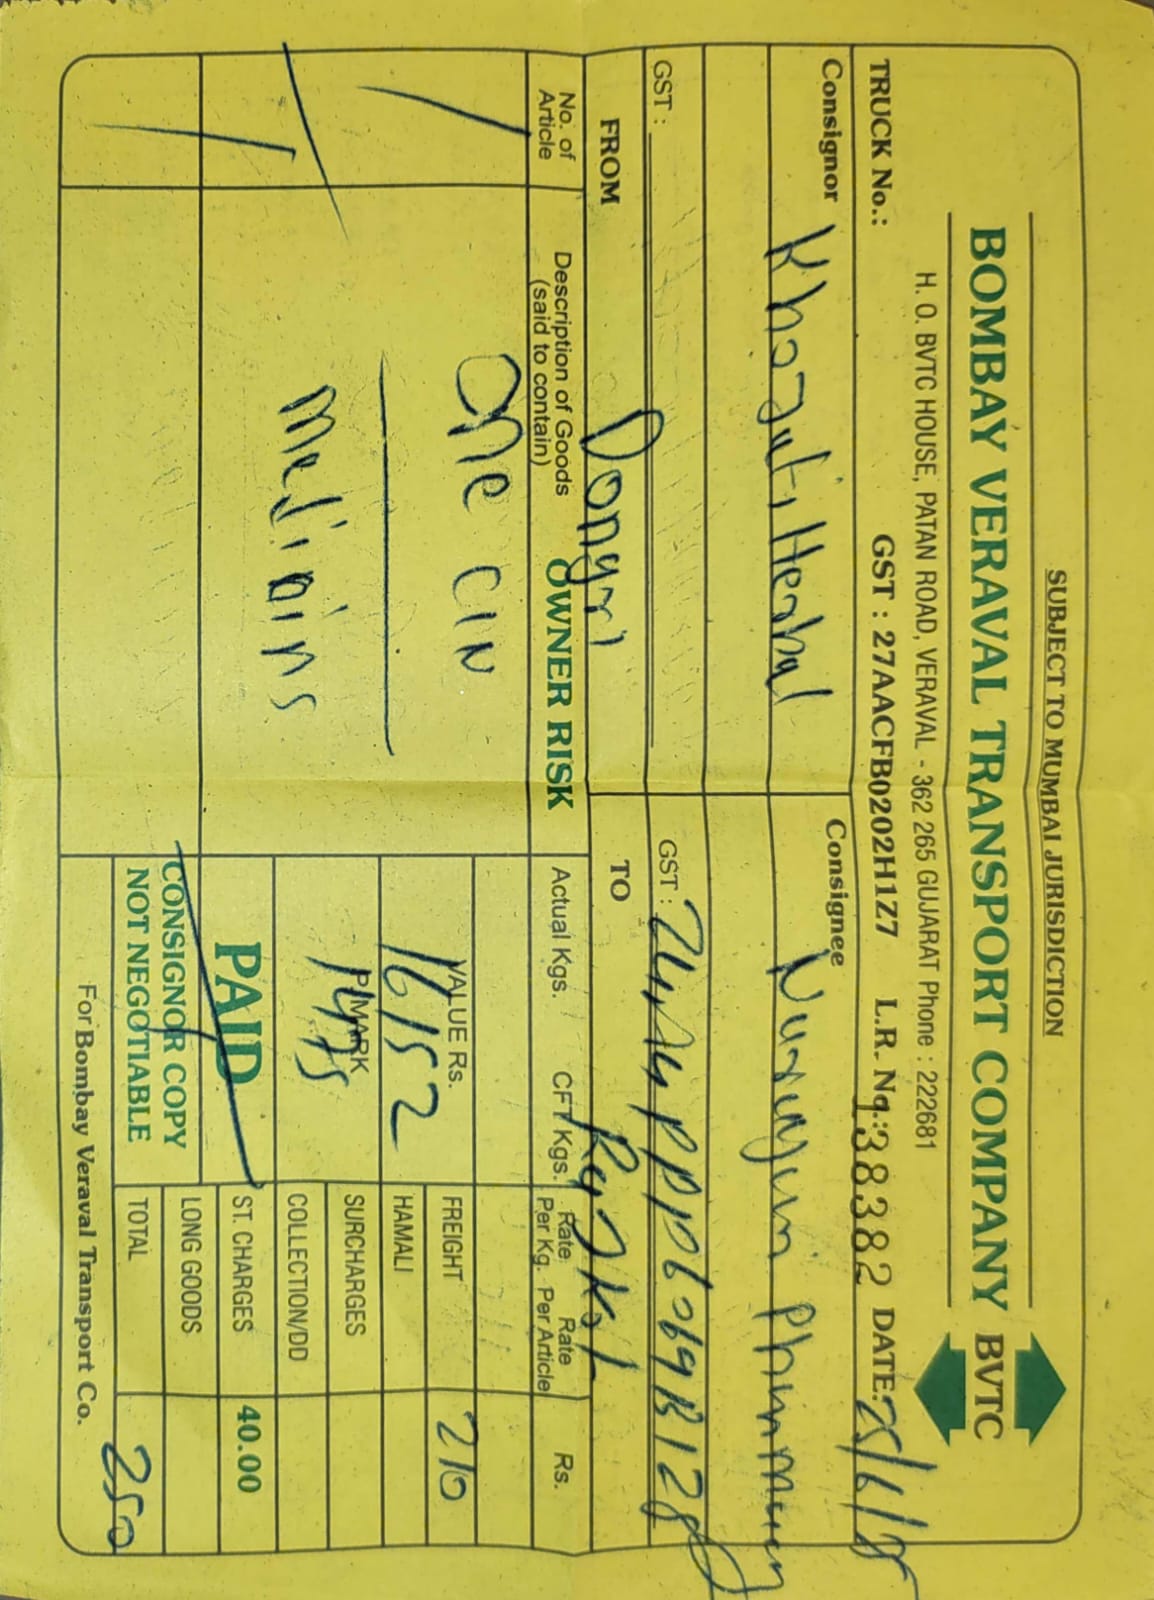 SUBJECT TO MUMBAI JURISDICTION
BOMBAY VERAVAL TRANSPORT COMPANY BVTC
H. O. BVTC HOUSE, PATAN ROAD, VERAVAL - 362 265 GUJARAT Phone : 222681
TRUCK No.: GST : 27AACFB0202H1Z7 L.R. No.: 138382 DATE: 25/6/25
Consignor Khojati Herbal
Consignee Narayan Pharmacy
GST :
GST :
FROM Dongri
TO Rajkot
No. of Article
Description of Goods (said to contain)
OWNER RISK
Actual Kgs.
CFT Kgs.
Rate Per Kg.
Rate Per Article
Rs.
1 One CIN
VALUE Rs. 16152
FREIGHT 210
HAMALI
P/MARK
SURCHARGES
COLLECTION/DD
1
PAID
ST. CHARGES 40.00
CONSIGNOR COPY
NOT NEGOTIABLE
LONG GOODS
TOTAL 250
For Bombay Veraval Transport Co.